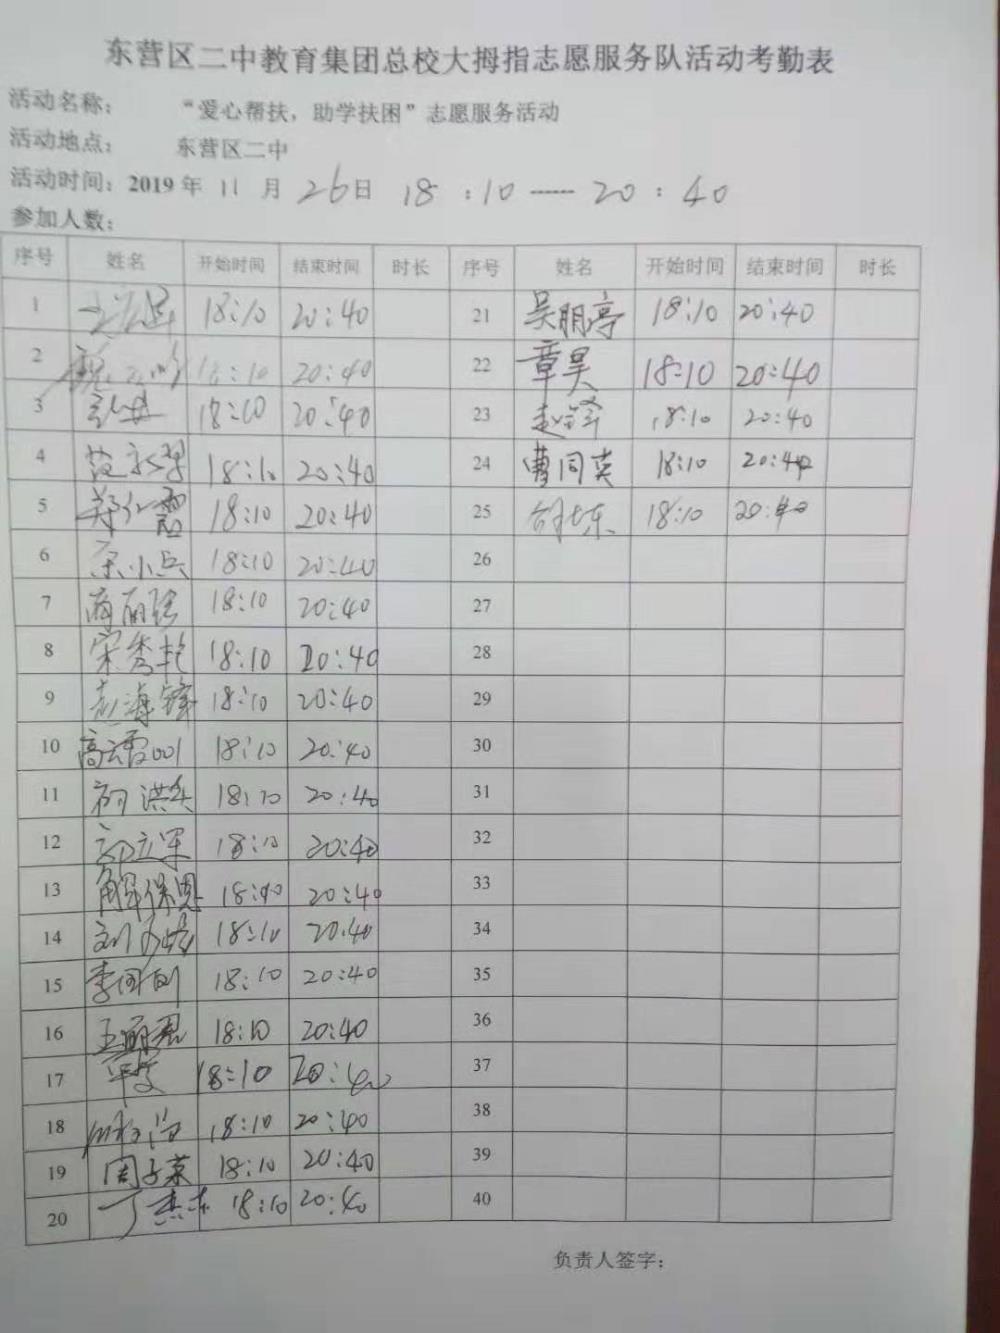 东营区二中教育集团总校大拇指志愿服务队活动考勤表
活动名称： “爱心帮扶，助学扶困”志愿服务活动
活动地点： 东营区二中
活动时间：2019年 11 月 26日 18 :10 ------ 20 : 40
参加人数：
序号 姓名 开始时间 结束时间 时长 序号 姓名 开始时间 结束时间 时长
1 18:10 20:40 21 吴朋亭 18:10 20:40
2 18:10 20:40 22 章昊 18:10 20:40
3 18:10 20:40 23 赵锋 18:10 20:40
4 18:10 20:40 24 曹同英 18:10 20:40
5 18:10 20:40 25 18:10 20:40
6 18:10 20:40 26
7 18:10 20:40 27
8 宋秀艳 18:10 20:40 28
9 赵海锋 18:10 20:40 29
10 高云霞001 18:10 20:40 30
11 18:10 20:40 31
12 郭立军 18:10 20:40 32
13 解保恩 18:10 20:40 33
14 18:10 20:40 34
15 18:10 20:40 35
16 18:10 20:40 36
17 18:10 20:40 37
18 18:10 20:40 38
19 周子菜 18:10 20:40 39
20 18:10 20:40 40
负责人签字：